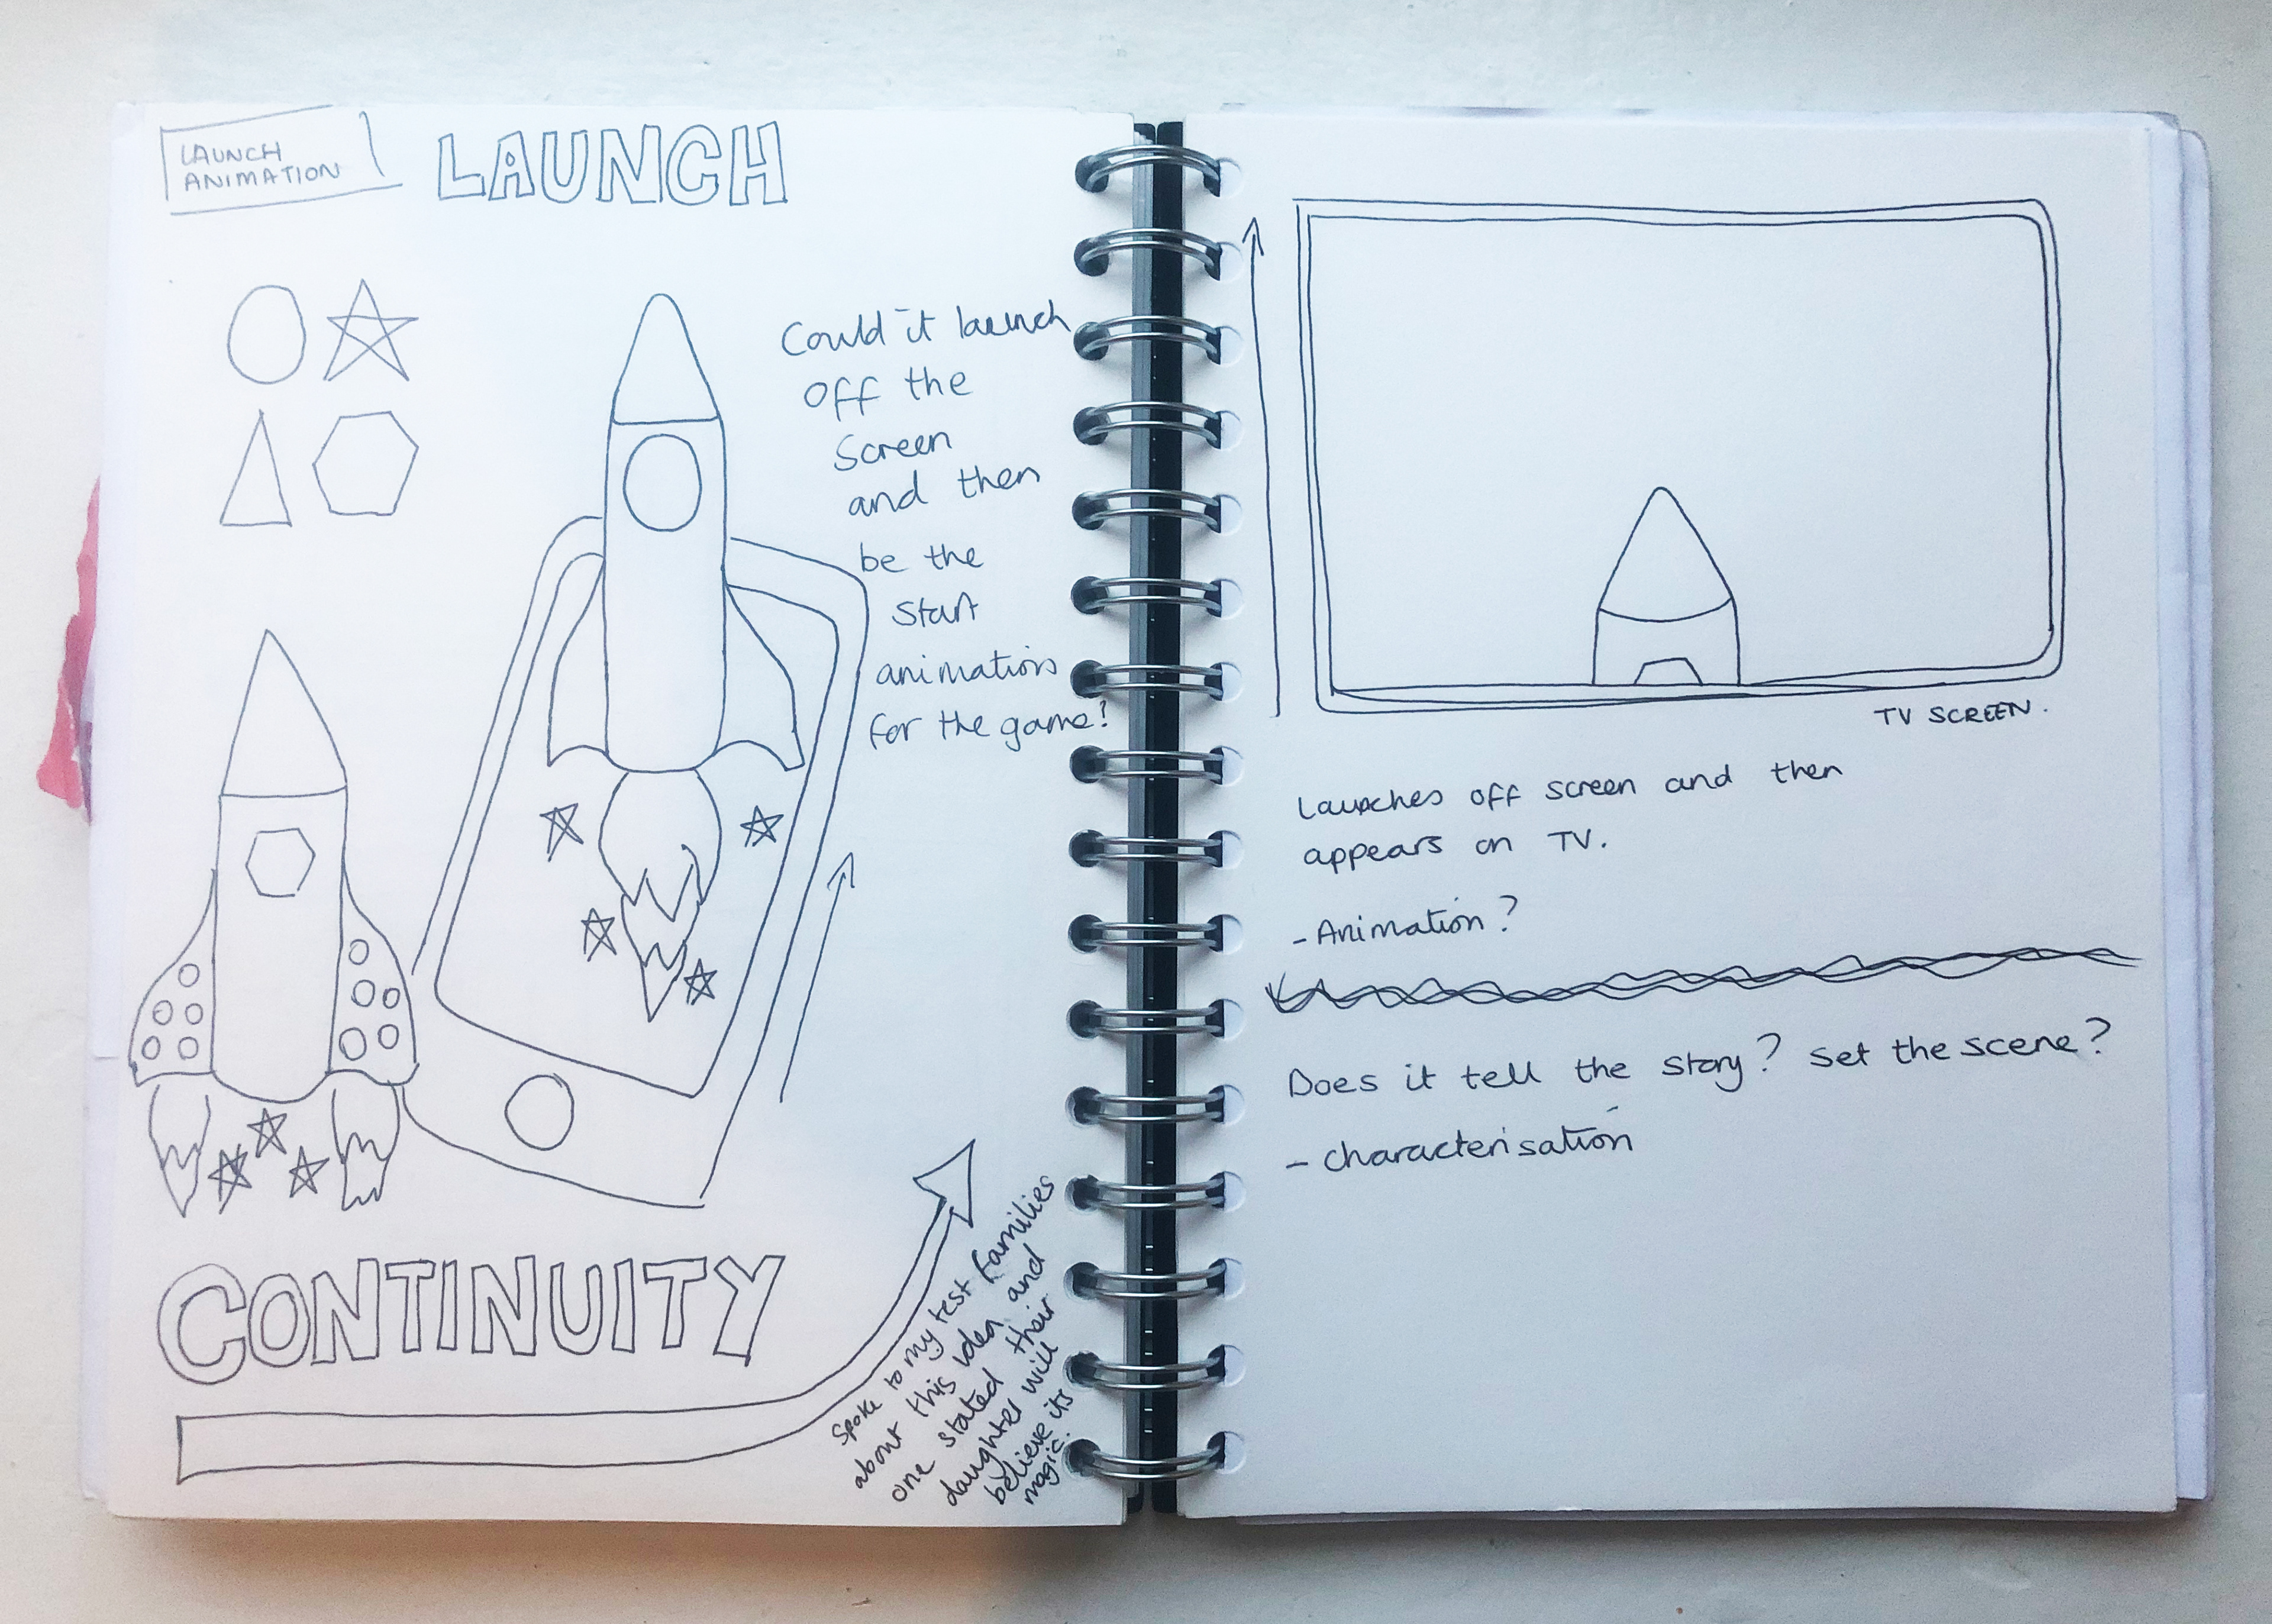 LAUNCH
ANIMATION
LAUNCH
Could it launch
off the
screen
and then
be the
start
animation
for the game?
CONTINUITY
Spoke to my test families
about this idea and
one stated their
daughter will
believe its
magic.
TV SCREEN.
Launches off screen and then
appears on TV.
- Animation?
Does it tell the story? Set the scene?
- characterisation